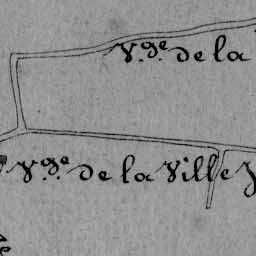 V.ge de la
V.ge de la Ville